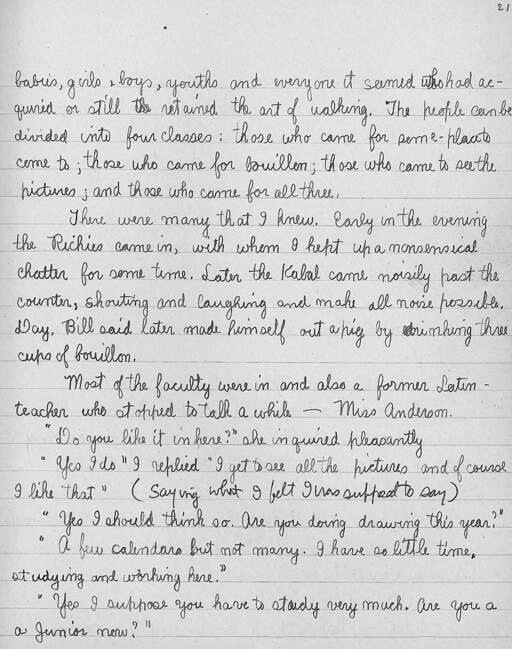 21
babies, girls, boys, youths and everyone it seemed who had ac-
quired or still the retained the art of walking. The people can be
divided into four classes: those who came for some-place to
come to; those who came for bouillon; those who came to see the
pictures; and those who came for all three.
There were many that I knew. Early in the evening
the Richies came in, with whom I kept up a nonsensical
chatter for some time. Later the Kabal came noisily past the
counter, shouting and laughing and make all noise possible.
Day, Bill said later made himself out a pig by drinking three
cups of bouillon.
Most of the faculty were in and also a former Latin-
teacher who stopped to talk a while — Miss Anderson.
"Do you like it in here?" she inquired pleasantly
"Yes I do" I replied "I get to see all the pictures and of course
I like that" (Saying what I felt I was supposed to say)
"Yes I should think so. Are you doing drawing this year?"
"A few calendars but not many. I have so little time,
studying and working here."
"Yes I suppose you have to study very much. Are you a
a Junior now?"